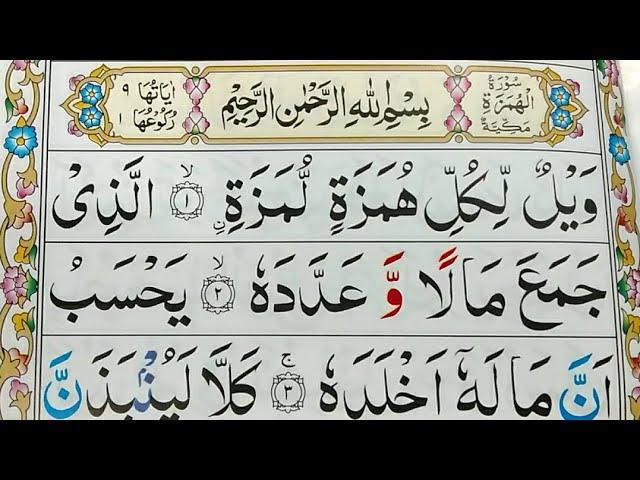 سُوْرَةُ
الْهُمَزَةِ
مَكِّيَّةٌ
بِسْمِ اللّٰهِ الرَّحْمٰنِ الرَّحِيْمِ
اٰيَاتُهَا ٩
رُكُوْعُهَا ١
وَيْلٌ لِّكُلِّ هُمَزَةٍ لُّمَزَةِ ۙ ﴿١﴾ نِ الَّذِىْ
جَمَعَ مَالًا وَّ عَدَّدَهٗ ۙ ﴿٢﴾ يَحْسَبُ
اَنَّ مَالَهٗۤ اَخْلَدَهٗ ۚ ﴿٣﴾ كَلَّا لَيُنْۢبَذَنَّ